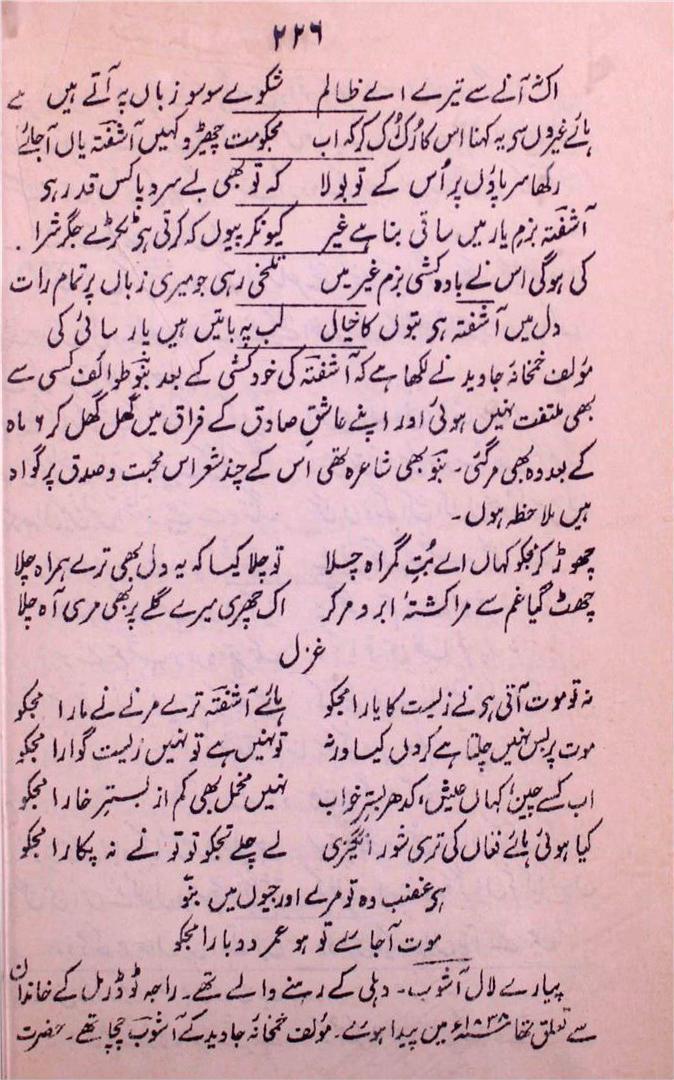 ۲۲۶
اک آنے سے تیرے اے ظالم شکوے سو سو زباں پہ آتے ہیں
ہائے غیروں سے یہ کہنا اس کا رُک رُک کر کہ اب مجکو مت چھیڑو کہیں آشفتہ یاں آجائے ہے
رکھا سر پاؤں پر اُس کے تو بولا کہ تو بھی بے سر و پا کس قدر ہے
آشفتہ بزمِ یار میں ساقی بنا ہے غیر کیونکر پیوں کہ کرتی ہے ٹکڑے جگر شراب
کی ہوگی اس نے بادہ کشی بزم غیر میں تلخی رہی جو میری زباں پر تمام رات
دل میں آشفتہ ہے بتوں کا خیال لب پہ باتیں ہیں پارسائی کی
مؤلف خمخانہ جاوید نے لکھا ہے کہ آشفتہ کی خودکشی کے بعد بنّو طوائف کسی سے
بھی ملتفت نہیں ہوئی اور اپنے عاشقِ صادق کے فراق میں گھل گھل کر ۶ ماہ
کے بعد وہ بھی مرگئی۔ بنّو بھی شاعرہ تھی اس کے چند شعر اس محبت و صدق پر گواہ
ہیں ملاحظہ ہوں۔
چھوڑ کر مجکو کہاں اے بُتِ گمراہ چلا تو چلا کیا کہ یہ دل بھی ترے ہمراہ چلا
چھٹ گیا غم سے مرا کشتۂ ابرو مر کر اک چھری میرے گلے پر بھی مری آہ چلا
غزل
نہ تو موت آتی ہے نے زیست کا یارا مجکو ہائے آشفتہ ترے مرنے نے مارا مجکو
موت پر بس نہیں چلتا ہے کروں کیا ورنہ تو نہیں ہے تو نہیں زیست گوارا مجکو
اب کسے چین، کہاں عیش، کدھر بسترِ خواب نہیں مخمل بھی کم از بسترِ خارا مجکو
کیا ہوئی ہائے فغاں کی تری شور انگیزی لے چلے تجکو تو تو نے نہ پکارا مجکو
ہے غضب وہ تو مرے اور جیوں میں بنّو
موت آجائے تو ہو عمر دوبارا مجکو
پیارے لال آشوب۔ دہلی کے رہنے والے تھے۔ راجہ ٹوڈرمل کے خاندان
سے تعلق تھا ۱۸۳۸ء میں پیدا ہوئے۔ مؤلف خمخانہ جاوید کے آشوب چچا تھے۔ حضرت